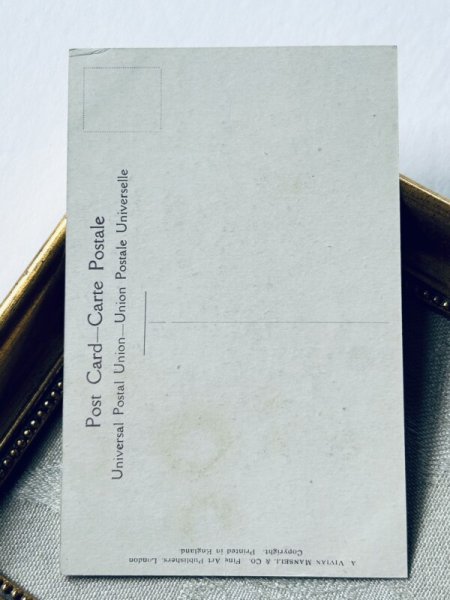 Post Card—Carte Postale
Universal Postal Union—Union Postale Universelle
A VIVIAN MANSELL & CO. Fine Art Publishers, London
Copyright. Printed in England.